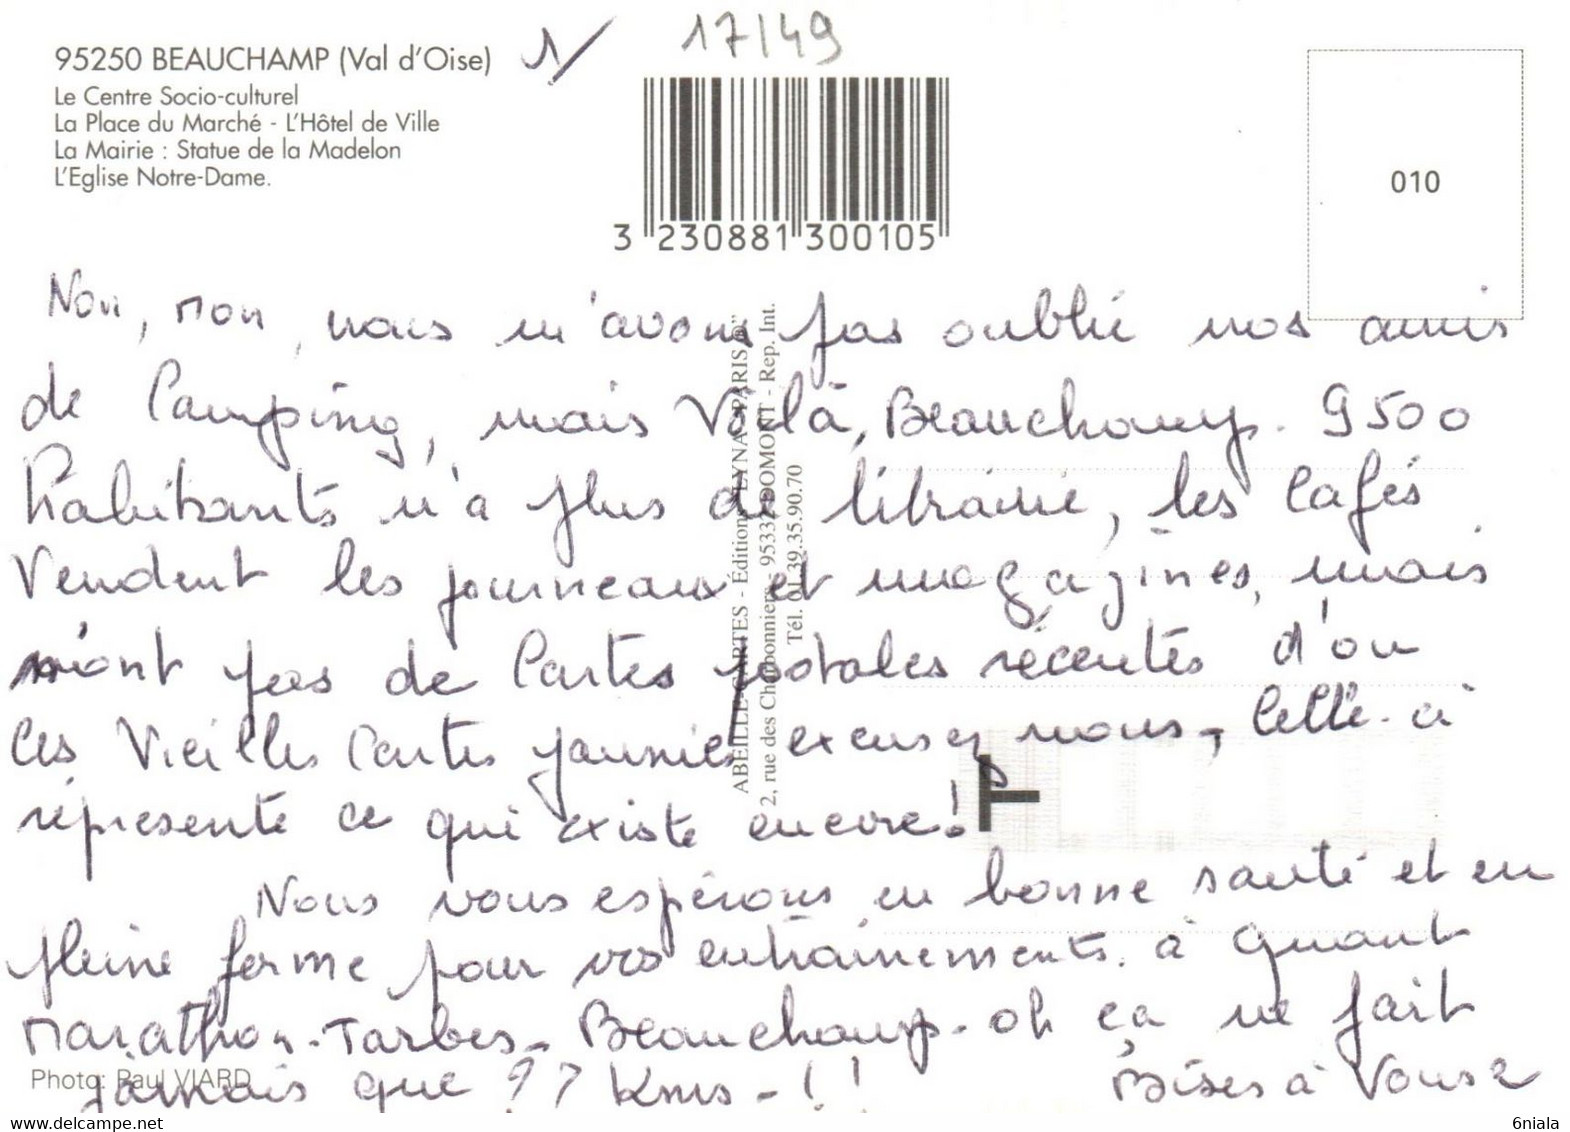 17/49
1/
95250 BEAUCHAMP (Val d'Oise)
Le Centre Socio-culturel
La Place du Marché - L'Hôtel de Ville
La Mairie : Statue de la Madelon
L'Eglise Notre-Dame.
3 230881 300105
010
Non, non, nous n'avons pas oublié nos amis
de Camping, mais Voilà, Beauchamp. 9500
habitants n'a plus de librairie, les Cafés
Vendent les journeaux et magazines, mais
n'ont pas de Cartes postales récentes d'ou
ces Vieilles Cartes jaunies excusez nous, Celle-ci
réprésente ce qui existe encore!
Nous vous espérons en bonne santé et en
pleine forme pour vos entraînements. à quant
Marathon-Tarbes-Beauchamp- oh ça ne fait
jamais que ?? kms - !!
Bises à Vous 2
ABEILLE-CARTES - Éditions "LYNA-PARIS ®"
2, rue des Charbonniers - 95330 DOMONT - Rep. Int.
Tél. 01.39.35.90.70
Photo: Paul VIARD
T
6niala